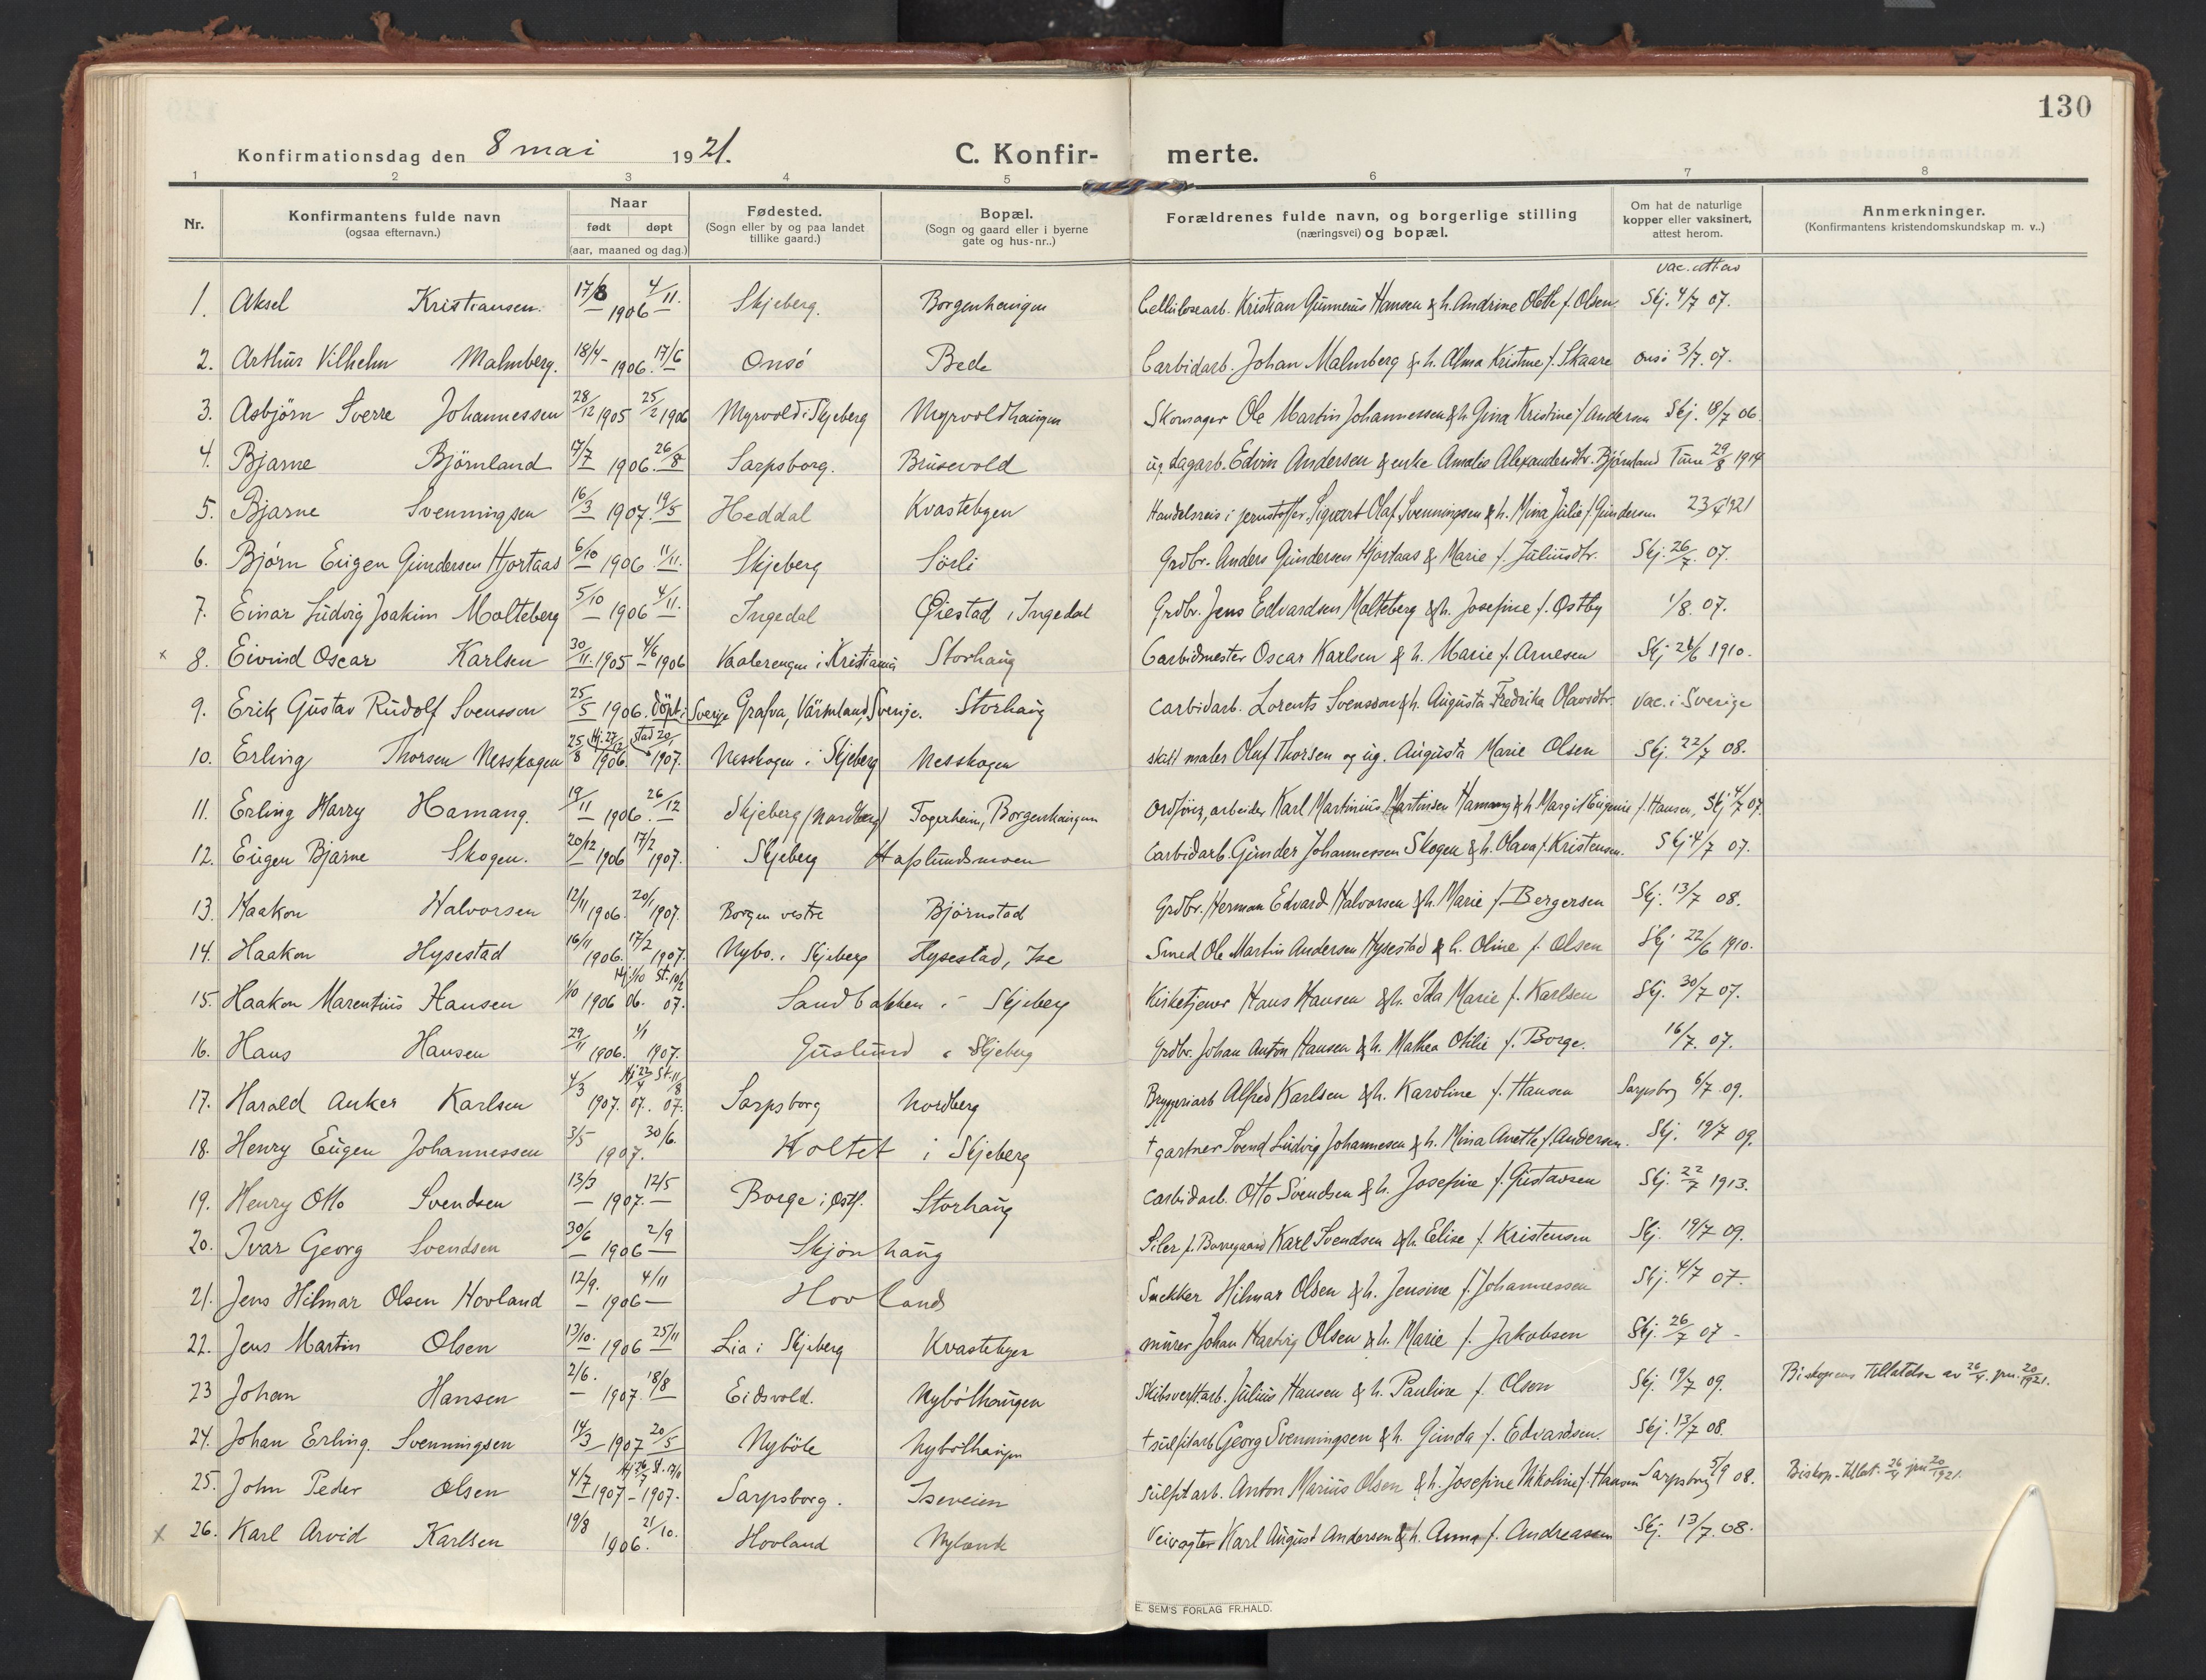 130
Konfirmationsdag den 8 mai 1921. C. Konfir- merte.
1 2 3 4 5 6 7 8
Nr. Konfirmantens fulde navn (ogsaa efternavn.) Naar født døpt (aar, maaned og dag.) Fødested. (Sogn eller by og paa landet tillike gaard.) Bopæl. (Sogn og gaard eller i byerne gate og hus-nr..) Forældrenes fulde navn, og borgerlige stilling (næringsvei) og bopæl. Om hat de naturlige kopper eller vaksinert, attest herom. Anmerkninger. (Konfirmantens kristendomskundskap m. v..)
1. Aksel Kristiansen. 17/8 1906 4/11. Skjeberg. Borgenhaugen Cellulosearb. Kristian Gunnerius Hansen & h. Andrine Oleth f. Olsen vac. attest Skj. 4/7 07.
2. Arthur Vilhelm Malmberg. 18/4 - 1906. 17/6 Onsö Bede Carbidarb. Johan Malmberg & h. Alma Kristine f. Skaare Onsö 3/7. 07.
3. Asbjörn Sverre Johannessen 28/12 1905 25/2 1906 Myrvold i Skjeberg Myrvoldhaugen Skomager Ole Martin Johannessen & h. Gina Kristine f. Andersen Skj. 18/7 06
4. Bjarne Björnland 17/7 1906. 26/8 Sarpsborg. Brusevold ug. dagarb. Edvin Andersen & enke Amalie Alexandersdtr. Björnland Tune 29/8 1914
5. Bjarne Svenningsen 16/3 1907. 19/5 Heddal Kvastebyen Handelsreis i Sigvart Olaf Svenningsen & h. Mina Julie f. Gundersen 23/4 1921
6. Björn Eugen Gundersen Hjortaas 6/10 1906 11/11. Skjeberg Sörli Grdbr. Anders Gundersen Hjortaas & Marie f. Juliusdtr. Skj. 26/7. 07.
7. Einar Ludvig Joakim Molteberg 5/10 1906 4/11. Ingedal Øiestad i Ingedal Grdbr. Jens Edvardsen Molteberg & h. Josefine f. Østby 1/8. 07.
x 8. Eivind Oscar Karlsen 30/11. 1905 4/6 1906 Vaalerengen i Kristiania Storhaug Carbidmester Oscar Karlsen & h. Marie f. Arnesen Skj 21/6 1910.
9. Erik Gustav Rudolf Svensson 25/5 1906. döpt i Sverige Grafva, Värmland, Sverige. Storhaug Carbidarb. Lorents Svensson & h. Augusta Fredrika Olavsdtr. Vac. i Sverige
10. Erling Thorsen Nesskogen 25/8 1906. Hj. 27/12 stad 20/1 1907. Nesskogen i Skjeberg Nesskogen skatt maler Oluf Thorsen og ug. Augusta Marie Olsen Skj. 22/7 08.
11. Erling Harry Hamang. 19/11 1906. 26/12 Skjeberg (Nordberg) Fagerheim, Borgenhaugen Ordförer, arbeider Karl Martinius Martinsen Hamang & h. Margit Eugenie f. Hansen, Skj 4/7 07.
12. Eugen Bjarne Skogen. 20/12 1906 17/2 1907. Skjeberg Hafslundsmoen Carbidarb. Gunder Johannessen Skogen & h. Olava f. Kristensen. Skj 4/7 07.
13. Haakon Halvorsen 12/11 1906. 20/1 1907. Borgen vestre Björnstad Grdbr. Herman Edvard Halvorsen & h. Marie f. Bergersen Skj. 13/7 08.
14. Haakon Hysestad 16/11 1906. 17/2 1907. Nybo. i Skjeberg Hysestad, Ise Smed Ole Martin Andersen Hysestad & h. Oline f. Olsen Skj 22/6 1910.
15. Haakon Marentius Hansen 1/10 1906 Hj. 1/10 06. St. 10/2 07. Sandbakken i Skjeberg Kirketjener Hans Hansen & h. Ida Marie f. Karlsen Skj. 30/7 07.
16. Hans Hansen 29/11 1906. 1/1 1907. Guslund i Skjeberg Grdbr. Johan Anton Hansen & h. Mathea Otilie f. Borge. 16/7. 07.
17. Harald Anker Karlsen 4/3 1907. Hj 22/4 07. St. 11/8 07. Sarpsborg Nordberg Bryggeriarb Alfred Karlsen & h. Karoline f. Hansen Sarpsborg 6/7 09.
18. Henry Eugen Johannessen 3/5 1907. 30/6. Holtet i Skjeberg † gartner Svend Ludvig Johannesen & h. Mina Anette f. Andersen. Skj. 19/7 09.
19. Henry Otto Svendsen 13/3 1907. 12/5 Borge i Østf. Storhaug Carbidarb. Otto Svendsen & h. Josefine f. Gustavsen Skj. 22/7 1913.
20. Ivar Georg Svendsen 30/6 1906 2/9 Skjönhaug Karl Svendsen & h. Elise f. Kristensen Skj. 19/7 09.
21. Jens Hilmar Olsen Hovland 12/9. 1906 4/11 Hovland Snekker Hilmar Olsen & h. Jensine f. Johannessen Skj. 4/7 07.
22. Jens Martin Olsen 13/10. 1906 25/11 Lia i Skjeberg Kvastebyen murer Johan Hartvig Olsen & h. Marie f. Jakobsen Skj. 26/7 07 -
23 Johan Hansen 2/6. 1907. 18/8 Eidsvold. Nybölhaugen Skibsverftarb. Julius Hansen & h. Pauline f. Olsen Skj. 19/7 09. Biskopens tillatelse av 26/4. jnr. 20/1921.
24. Johan Erling. Svenningsen 14/3 1907 20/5 Nyböle Nybölhaugen † sulfitarb Georg Svenningsen & h. Gunda f. Edvardsen. Skj. 13/7 08.
25. John Peder Olsen 4/7 1907 Hj 26/7 St. 17/11 1907. Sarpsborg. Iseveien Sulfitarb. Anton Marius Olsen & h. Josefine Nikoline f. Hansen Sarpsborg 5/9 08. Biskop-tillat. 26/4 jnr 20/1921.
x 26. Karl Arvid Karlsen 19/8 1906. 21/10. Hovland Nylænde Veivogter Karl August Andersen & h. Anna f. Andreassen Skj. 13/7. 08.
E. SEM'S FORLAG FR.HALD.